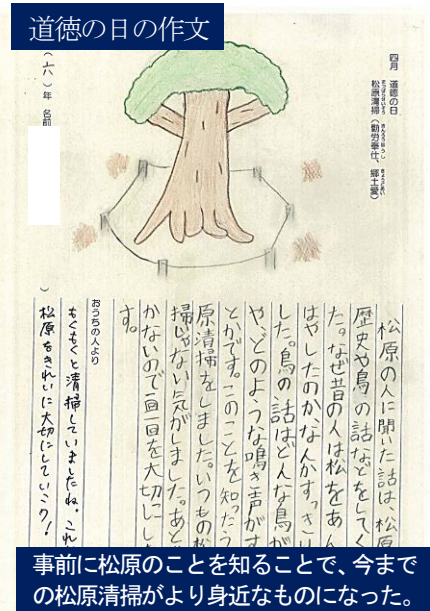 道徳の日の作文
四月 道徳の日
松原清掃(勤労奉仕、郷土愛)
(六)年 名前 )
松原の人に聞いた話は、松原
歴史や鳥の話などをしてく
た。なぜ昔の人は松をあん
はやしたのかなんかすっきり
した。鳥の話はどんな鳥が
や、どのような鳴き声がす
とかです。このことを知ったう
原清掃をしました。いつもの松
掃じゃない気がしました。あと
かないので一回一回を大切にし
す。
おうちの人より
もくもくと清掃していましたね。これ
松原をきれいに大切にしていこう!
事前に松原のことを知ることで、今まで
の松原清掃がより身近なものになった。